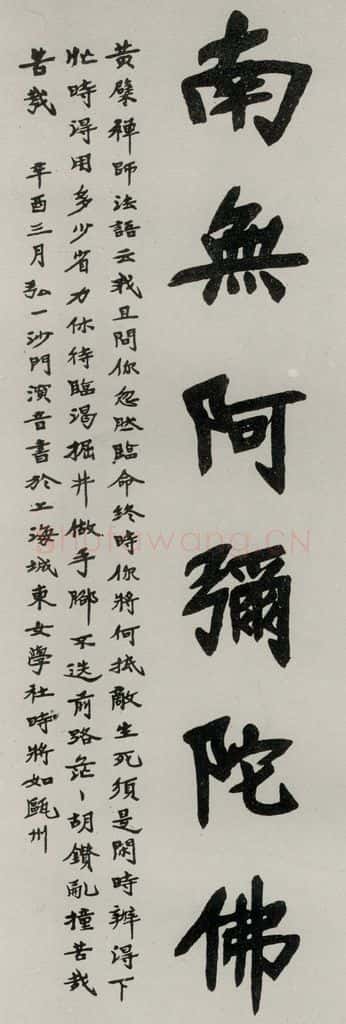 南無阿彌陀佛
黃檗禪師法語云我且問你忽然臨命終時你將何抵敵生死須是閑時辦得下
忙時得用多少省力休待臨渴掘井做手腳不迭前路茫〻胡鑽亂撞苦哉
苦哉　辛酉三月弘一沙門演音書於上海城東女學社時將如甌州
shufawang.CN